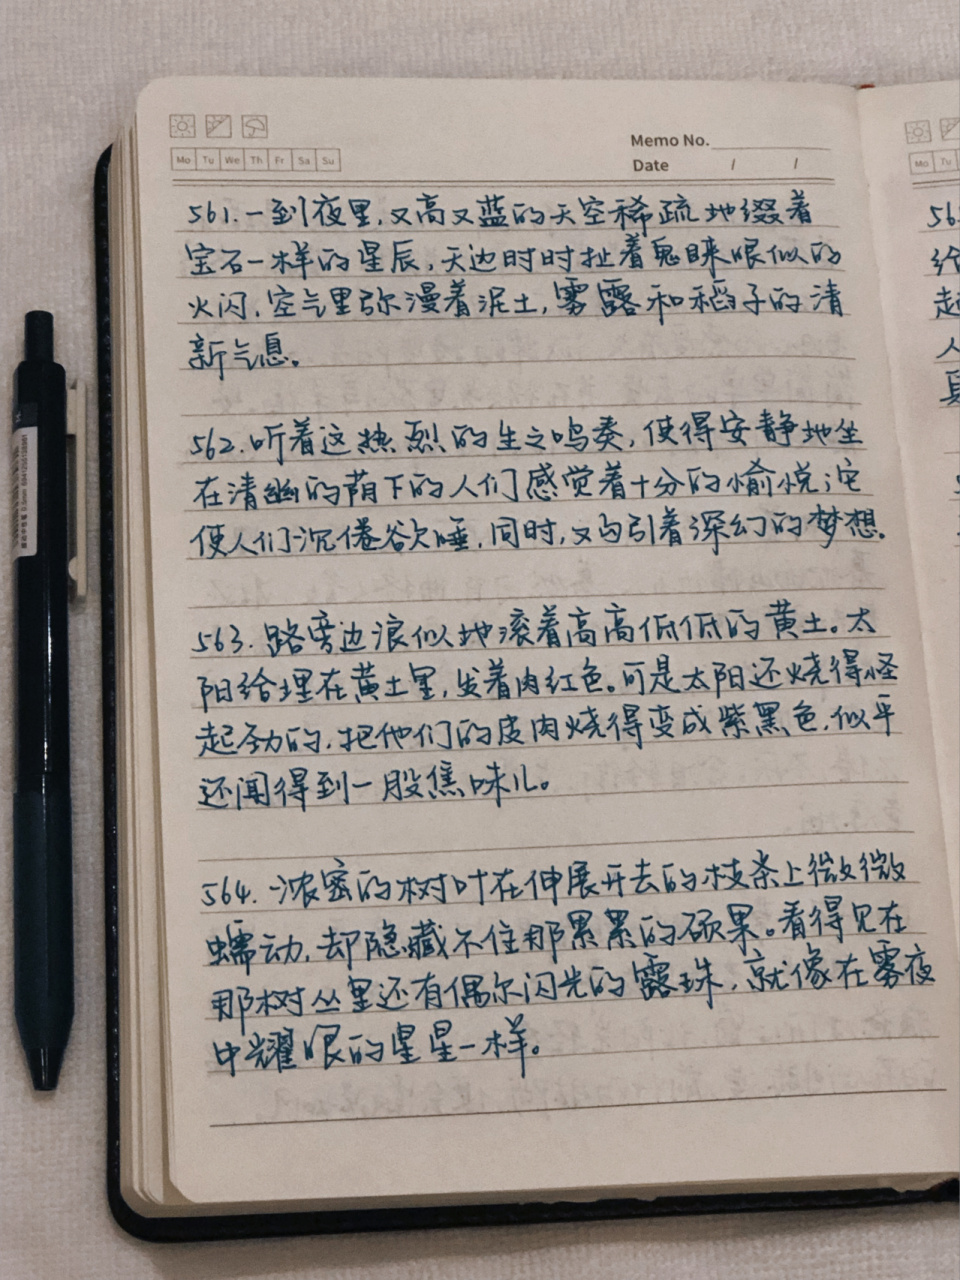 Memo No.
Mo Tu We Th Fr Sa Su
Date / /
561.一到夜里,又高又蓝的天空稀疏地缀着
宝石一样的星辰,天边时时扯着鬼睐眼似的
火闪,空气里弥漫着泥土,雾露和稻子的清
新气息。
562.听着这热烈的生之鸣奏,使得安静地坐
在清幽的荫下的人们感觉着十分的愉悦;它
使人们沉倦欲睡,同时,又勾引着深幻的梦想.
563.路旁边浪似地滚着高高低低的黄土。太
阳给埋在黄土里,发着肉红色。可是太阳还烧得怪
起劲的,把他们的皮肉烧得变成紫黑色,似乎
还闻得到一股焦味儿。
564.浓密的树叶在伸展开去的枝条上微微
蠕动,却隐藏不住那累累的硕果。看得见在
那树丛里还有偶尔闪光的露珠,就像在雾夜
中耀眼的星星一样。
Mo Tu
给
起
人